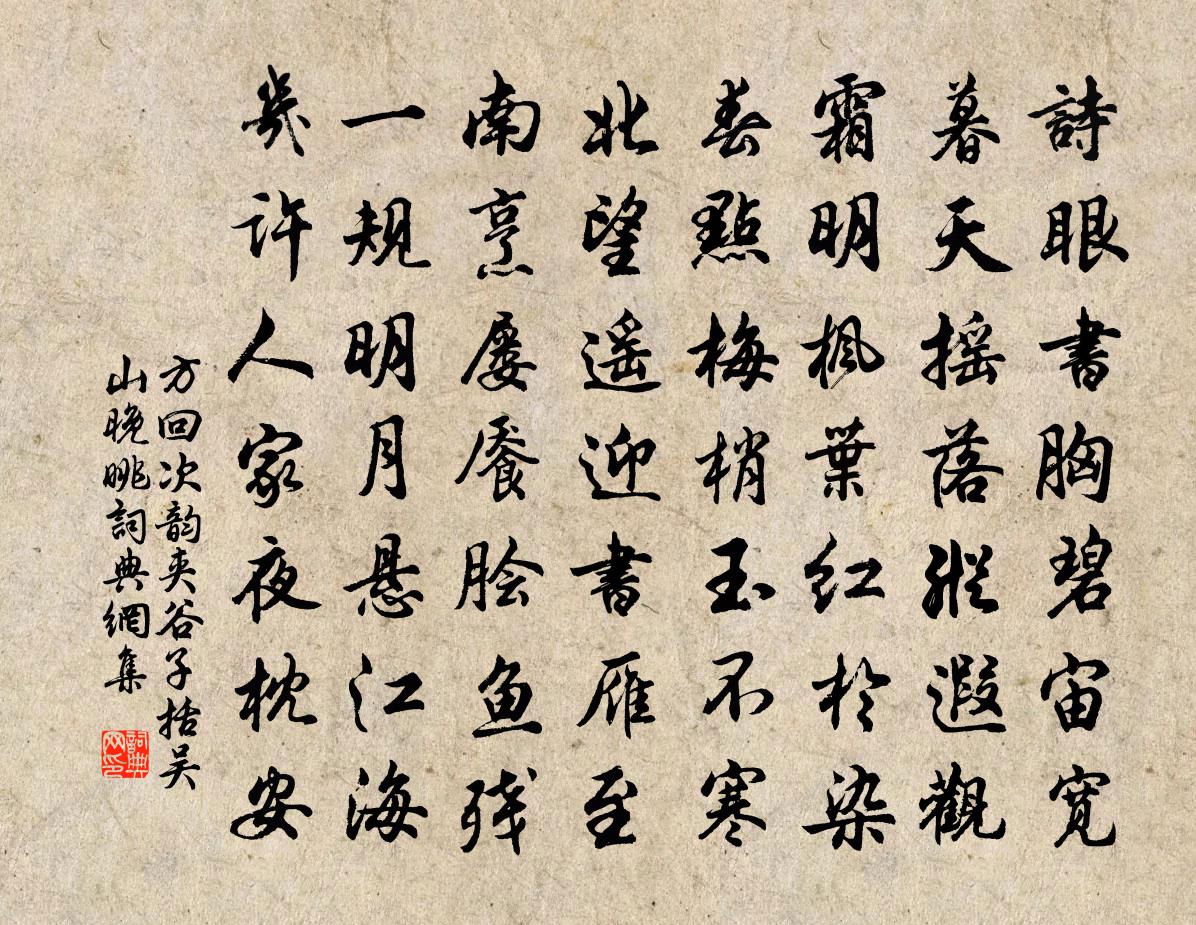 詩眼書胸碧宙寬
暮天摇落縱遐觀
霜明楓葉红於染
春點梅梢玉不寒
北望遥迎書雁至
南烹屡餍脍鱼残
一规明月悬江海
幾许人家夜枕安
方回次韵夹谷子括吴
山晚眺詞典網集
詞典网印